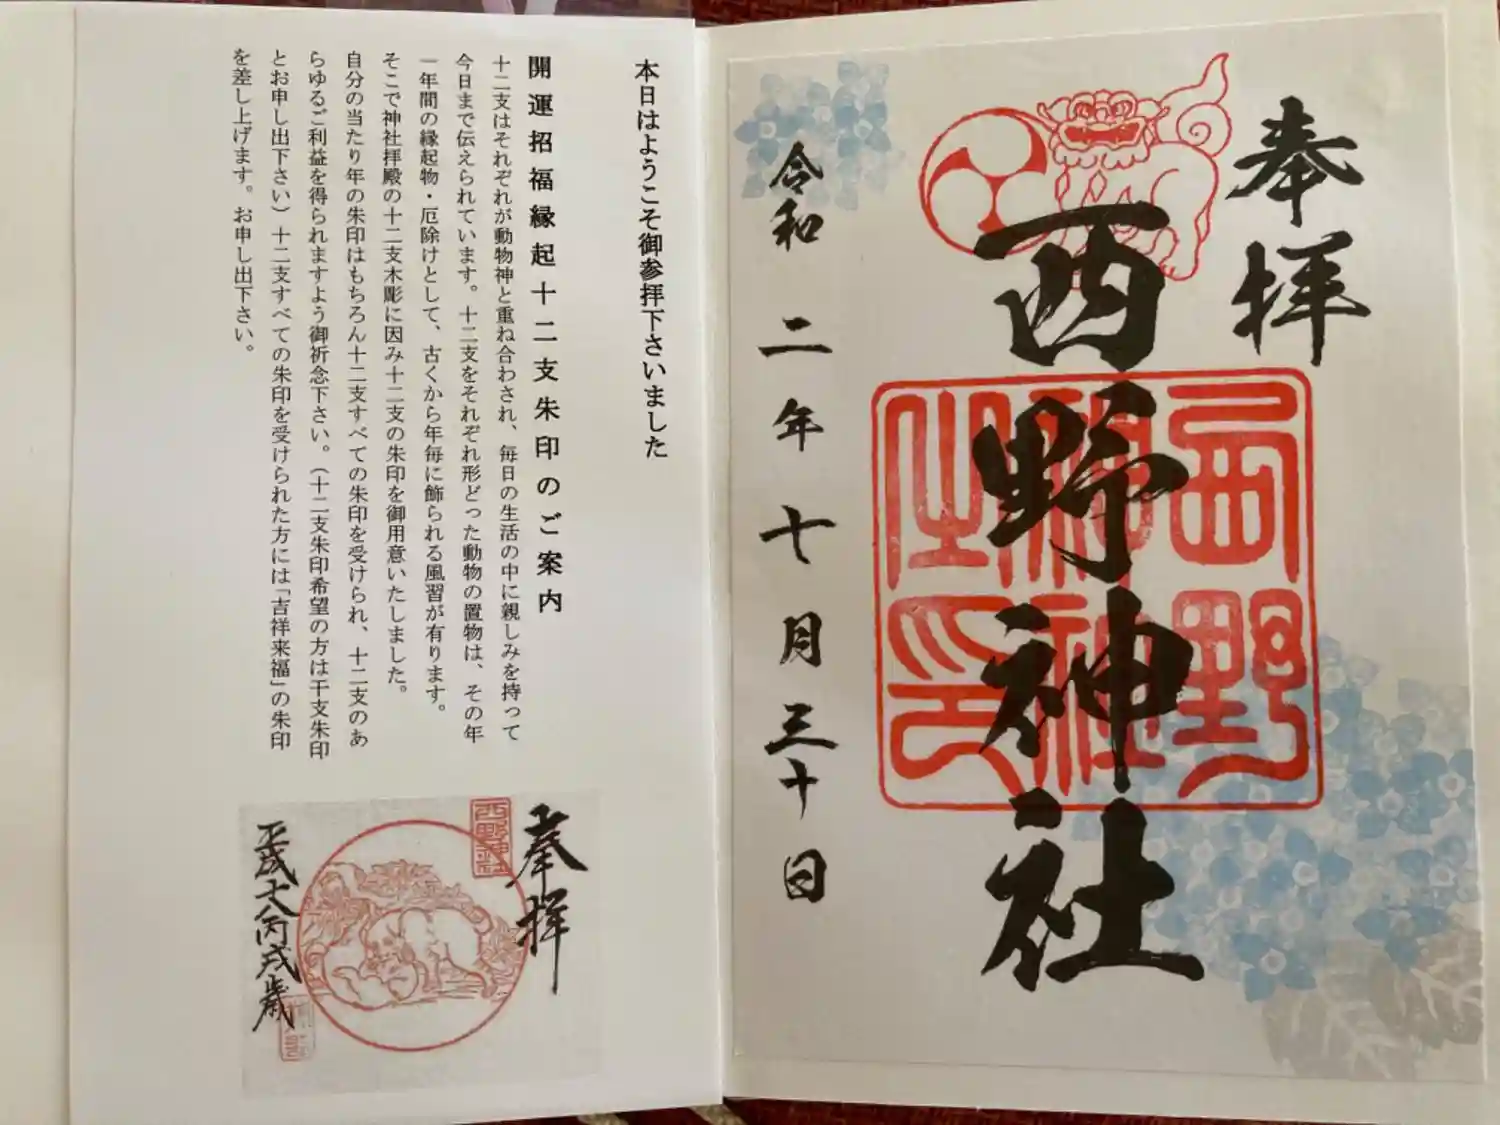 奉拝
西野神社
西野
神社
之印
令和二年七月三十日
本日はようこそ御参拝下さいました
開運招福縁起十二支朱印のご案内
十二支はそれぞれが動物神と重ね合わされ、毎日の生活の中に親しみを持って
今日まで伝えられています。十二支をそれぞれ形どった動物の置物は、その年
一年間の縁起物・厄除けとして、古くから年毎に飾られる風習が有ります。
そこで神社拝殿の十二支木彫に因み十二支の朱印を御用意いたしました。
自分の当たり年の朱印はもちろん十二支すべての朱印を受けられ、十二支のあ
らゆるご利益を得られますよう御祈念下さい。（十二支朱印希望の方は干支朱印
とお申し出下さい）十二支すべての朱印を受けられた方には「吉祥来福」の朱印
を差し上げます。お申し出下さい。
奉拝
西野神社
平成十八丙戌歳